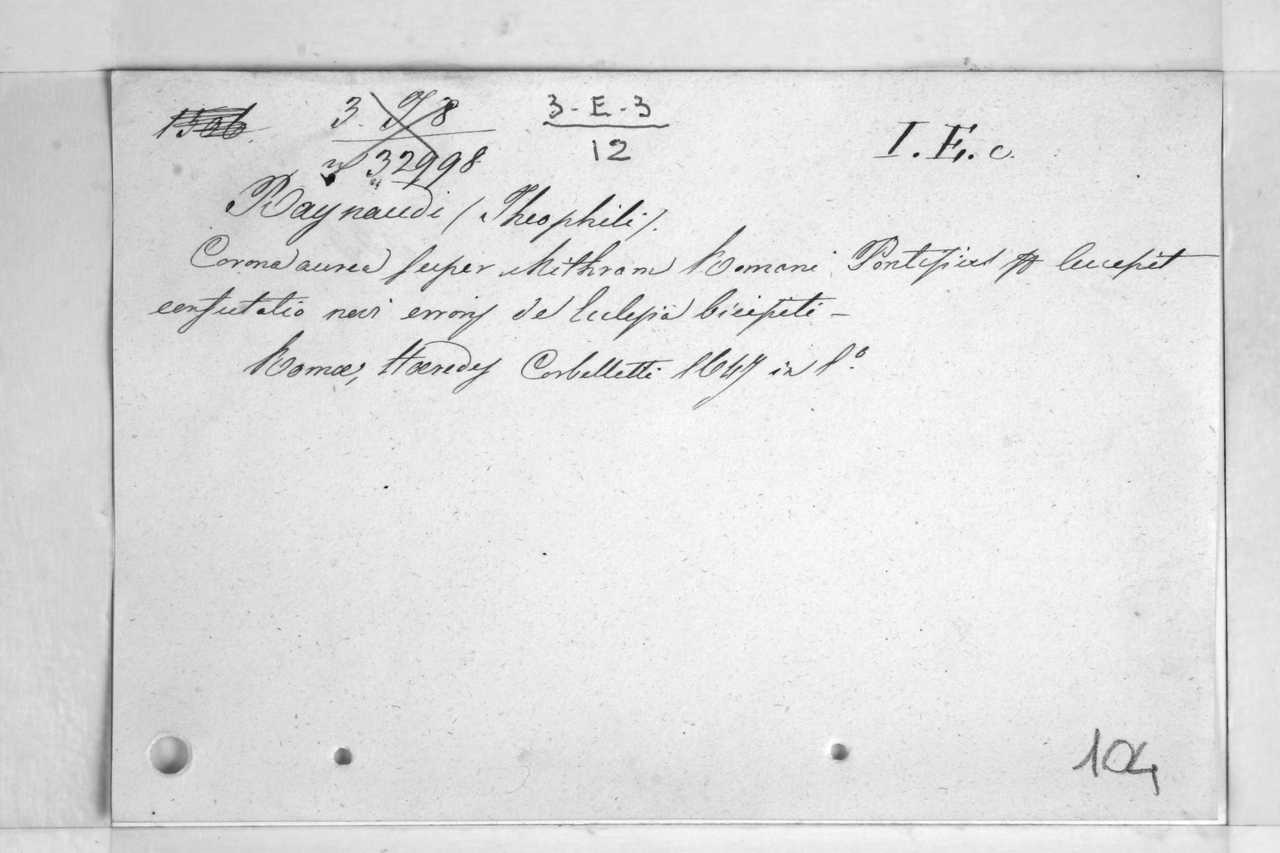 3. J 8 3-E-3 I. E. c.
32998 12
Raynaudi (Theophili).
Corona aurea super Mithram Romani Pontificis
confutatio novi erroris de Eclesia bicipiti —
Romæ, Hæredes Corbelletti 1647 in 8.º
104